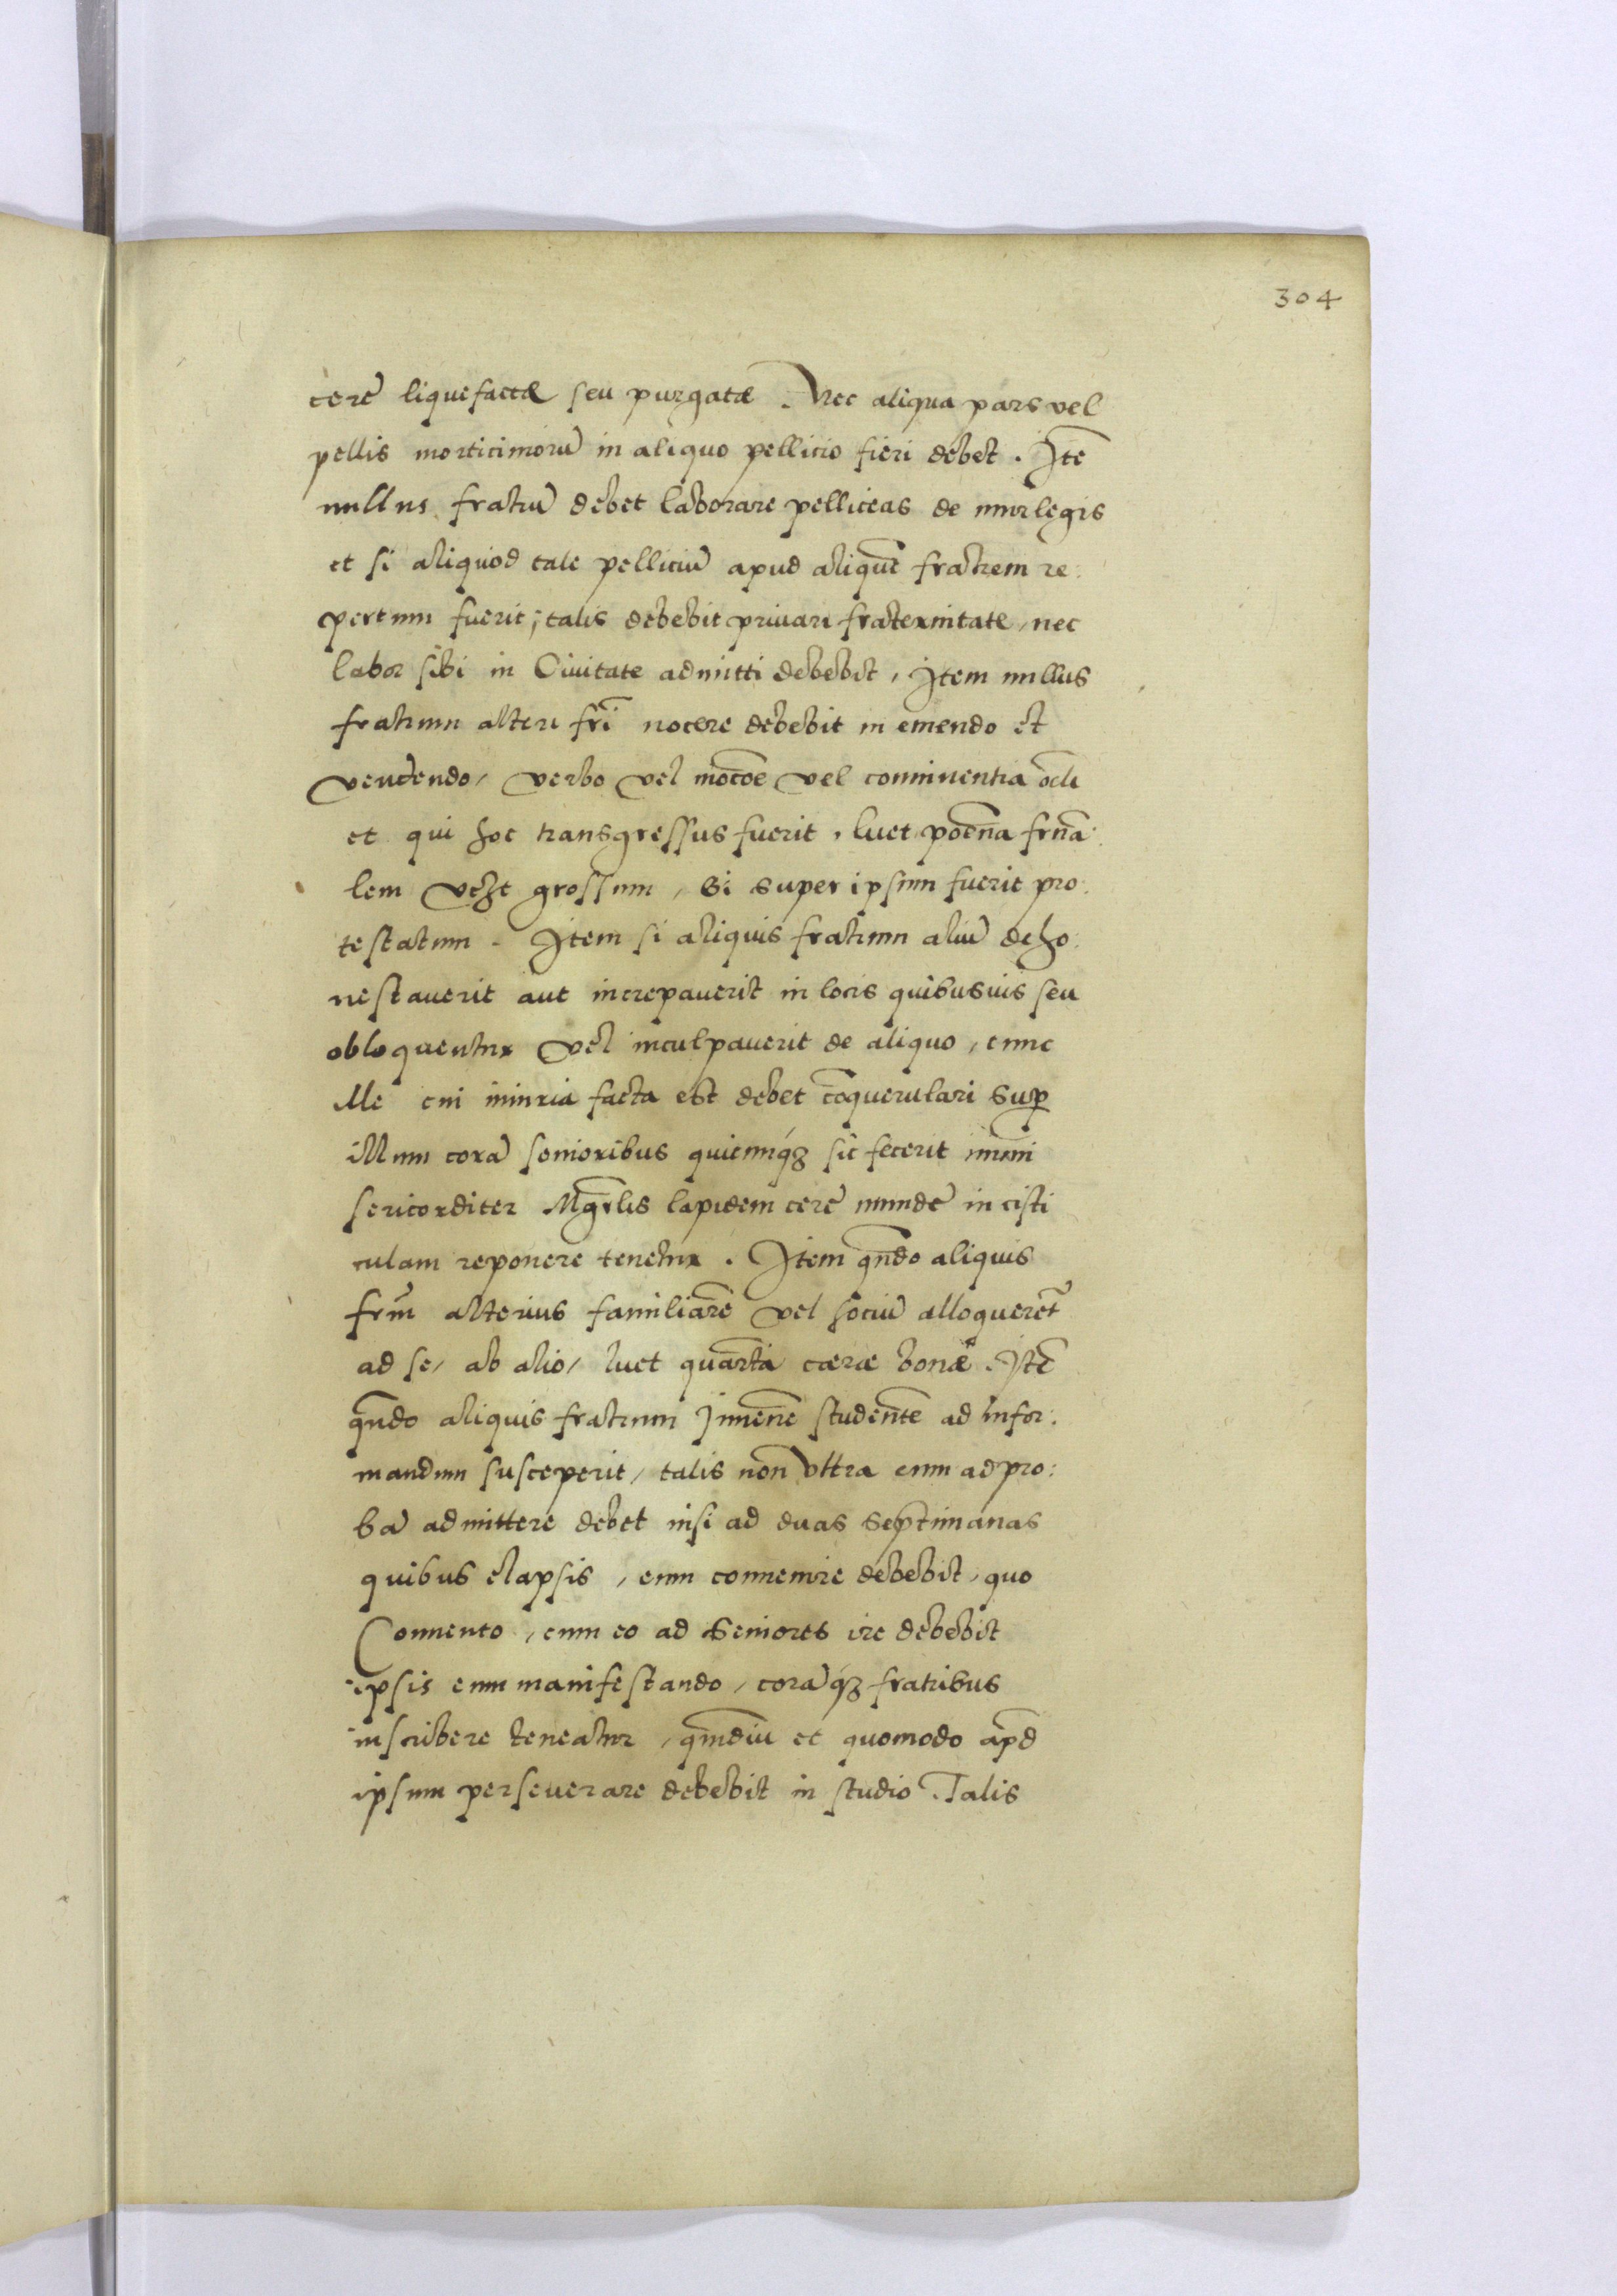 304
cerę liquefactæ seu purgatæ. Nec aliqua pars vel
pellis morticiniorũ in aliquo pellicio fieri debet. Itẽ
nullus fratrũ debet laborare pelliceas de murlegis
et si aliquod tale pelliciũ apud aliquẽ fratrem re:
pertum fuerit; talis debebit priuari fraternitate, nec
labor sibi in Ciuitate admitti debebit, Item nullus
fratrum alteri fr̃i nocere debebit in emendo et
vendendo, verbo vel mocõe vel conniuentia oc̃li
et qui hoc transgressus fuerit, luet poẽna frña:
lem vczt grossum, Si super ipsum fuerit pro:
testatum. Item si aliquis fratrum aliũ deho:
nestauerit aut increpauerit in locis quibusuis seu
obloquentur vel inculpauerit de aliquo, tunc
ille cui iniuria facta est debet cõquerulari sup
illum corã senioribus quicunqꝫ sic fecerit immi
sericorditer Mgr̃lis lapidem cerę mundę in cisti
culam reponere tenetur. Item qñdo aliquis
frũm alterius familiarẽ vel sociũ alloqueret̃
ad se, ab alio, luet quartã cæræ bonæ. Itẽ
qñdo aliquis fratrum Iuuenẽ studentẽ ad infor:
mandum susceperit, talis nõn vltra eum ad pro:
bã admittere debet nisi ad duas septimanas
quibus elapsis, eum conuenire debebit, quo
Conuento, cum eo ad Seniores ire debebit
ipsis eum manifestando, corãqꝫ fratribus
inscribere teneatur, qmdiũ et quomodo apd̃
ipsum perseuerare debebit in studio. Talis